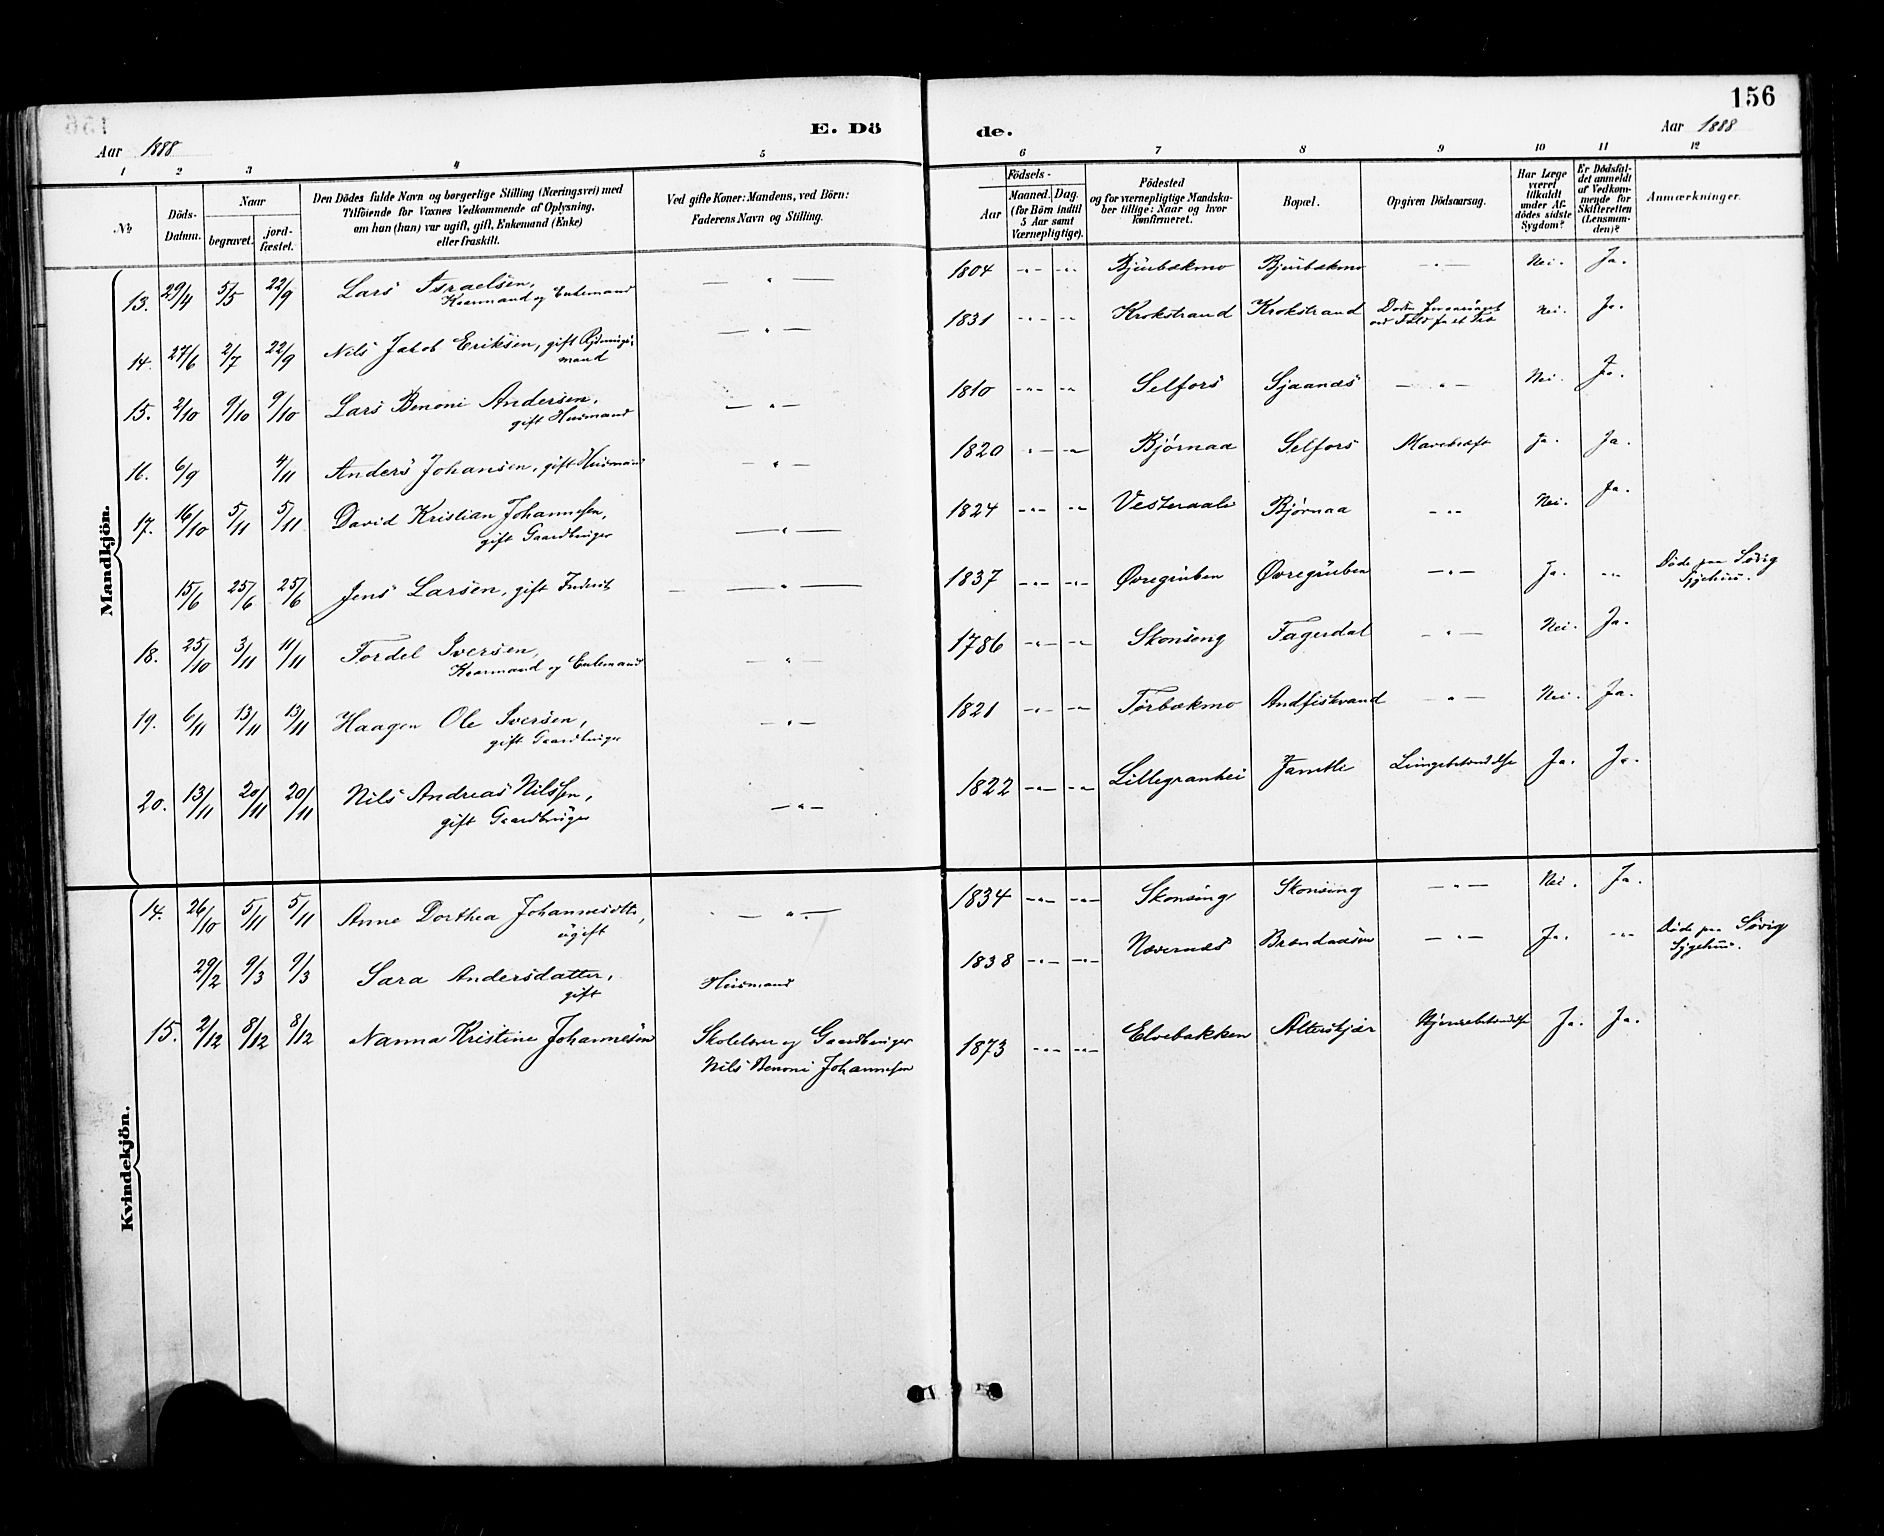 156
E. Dö
de.
Aar 1888
Aar 1888
1 2 3 4 5 6 7 8 9 10 11 12
№
Döds-Datum.
Naar
begravet.
jord-fæstet.
Den Dödes fulde Navn og borgerlige Stilling (Næringsvei) med
Tilföiende for Voxnes Vedkommende af Oplysning,
om han (hun) var ugift, gift, Enkemand (Enke)
eller fraskilt.
Ved gifte Koner: Mandens, ved Börn:
Faderens Navn og Stilling.
Aar
Födsels-
Maaned. Dag.
(for Börn indtil
5 Aar samt
Værnepligtige).
Födested
og for værnepligtige Mandska-
ber tillige: Naar og hvor
konfirmeret.
Bopæl.
Opgiven Dödsaarsag.
Har Læge
været
tilkaldt
under Af-
dödes sidste
Sygdom?
Er Dödsfal-
det anmeldt
af Vedkom-
mende for
Skifteretten
(Lensman-
den)?
Anmærkninger.
Mandkjön.
13. 29/4 5/5 22/9 Lars Israelsen, — " — 1804 -"- -"- Bjurbækmo Bjurbækmo -"- Nei. Ja.
Kaarmand og Enkemand
14. 27/6 2/7 22/9 Nils Jakob Eriksen, gift Rydnings- — " — 1831 -"- -"- Krokstrand Krokstrand Nei. Ja.
mand
15. 2/10 9/10 9/10 Lars Benoni Andersen, — " — 1810 -"- -"- Selfors Sjaanæs — " — Nei. Ja.
gift Husmand
16. 6/9 4/11 Anders Johansen, gift Husmand — " — 1820 -"- -"- Bjørnaa Selfors Mavekræft Ja. Ja.
17. 16/10 5/11 5/11 David Kristian Johannesen, — " — 1824 -"- -"- Vesteraalen Bjørnaa -"- Nei. Ja.
gift Gaardbruger
15/6 25/6 25/6 Jens Larsen, gift Inderst — " — 1837 -"- -"- Øvregruben Øvregruben -"- Ja. -"- Døde paa Søvig
Sygehus.
18. 25/10 3/11 11/11 Tordel Iversen, — " — 1786 -"- -"- Skonseng Fagerdal -"- Nei. Ja.
Kaarmand og Enkemand
19. 6/11 13/11 13/11 Haagen Ole Iversen, — " — 1821 -"- -"- Tørbækmo Andfiskvand -"- Nei. Ja.
gift Gaardbruger
20. 13/11 20/11 20/11 Nils Andreas Nilssen, — " — 1822 -"- -"- Lillegranhei Jamtli Lungebetændelse Ja. Ja.
gift Gaardbruger
Kvindekjön.
14. 26/10 5/11 5/11 Anne Dorthea Johannesdtr, — " — 1834 -"- -"- Skonseng Skonseng — " — Nei. Ja.
ugift
29/2 9/3 9/3 Sara Andersdatter, Husmand 1838 -"- -"- Nævernæs Brendaasen — " — Ja. -"- Døde paa Søvig
gift Sygehus.
15. 2/12 8/12 8/12 Nanna Kristine Johannesen Skolelærer og Gaardbruger 1873 -"- -"- Elvebakken Alterskjær Hjernebetændelse Ja. Ja.
Nils Benoni Johannesen